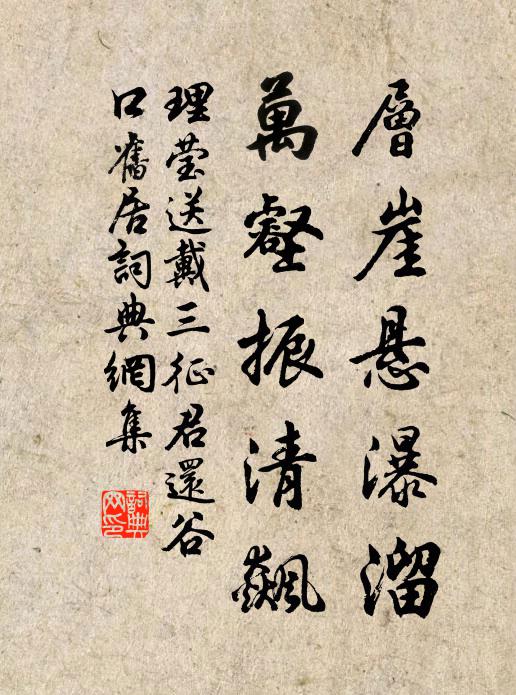 層崖懸瀑溜
萬壑振清飆
理瑩送戴三征君還谷
口舊居詞典網集
詞典
网印